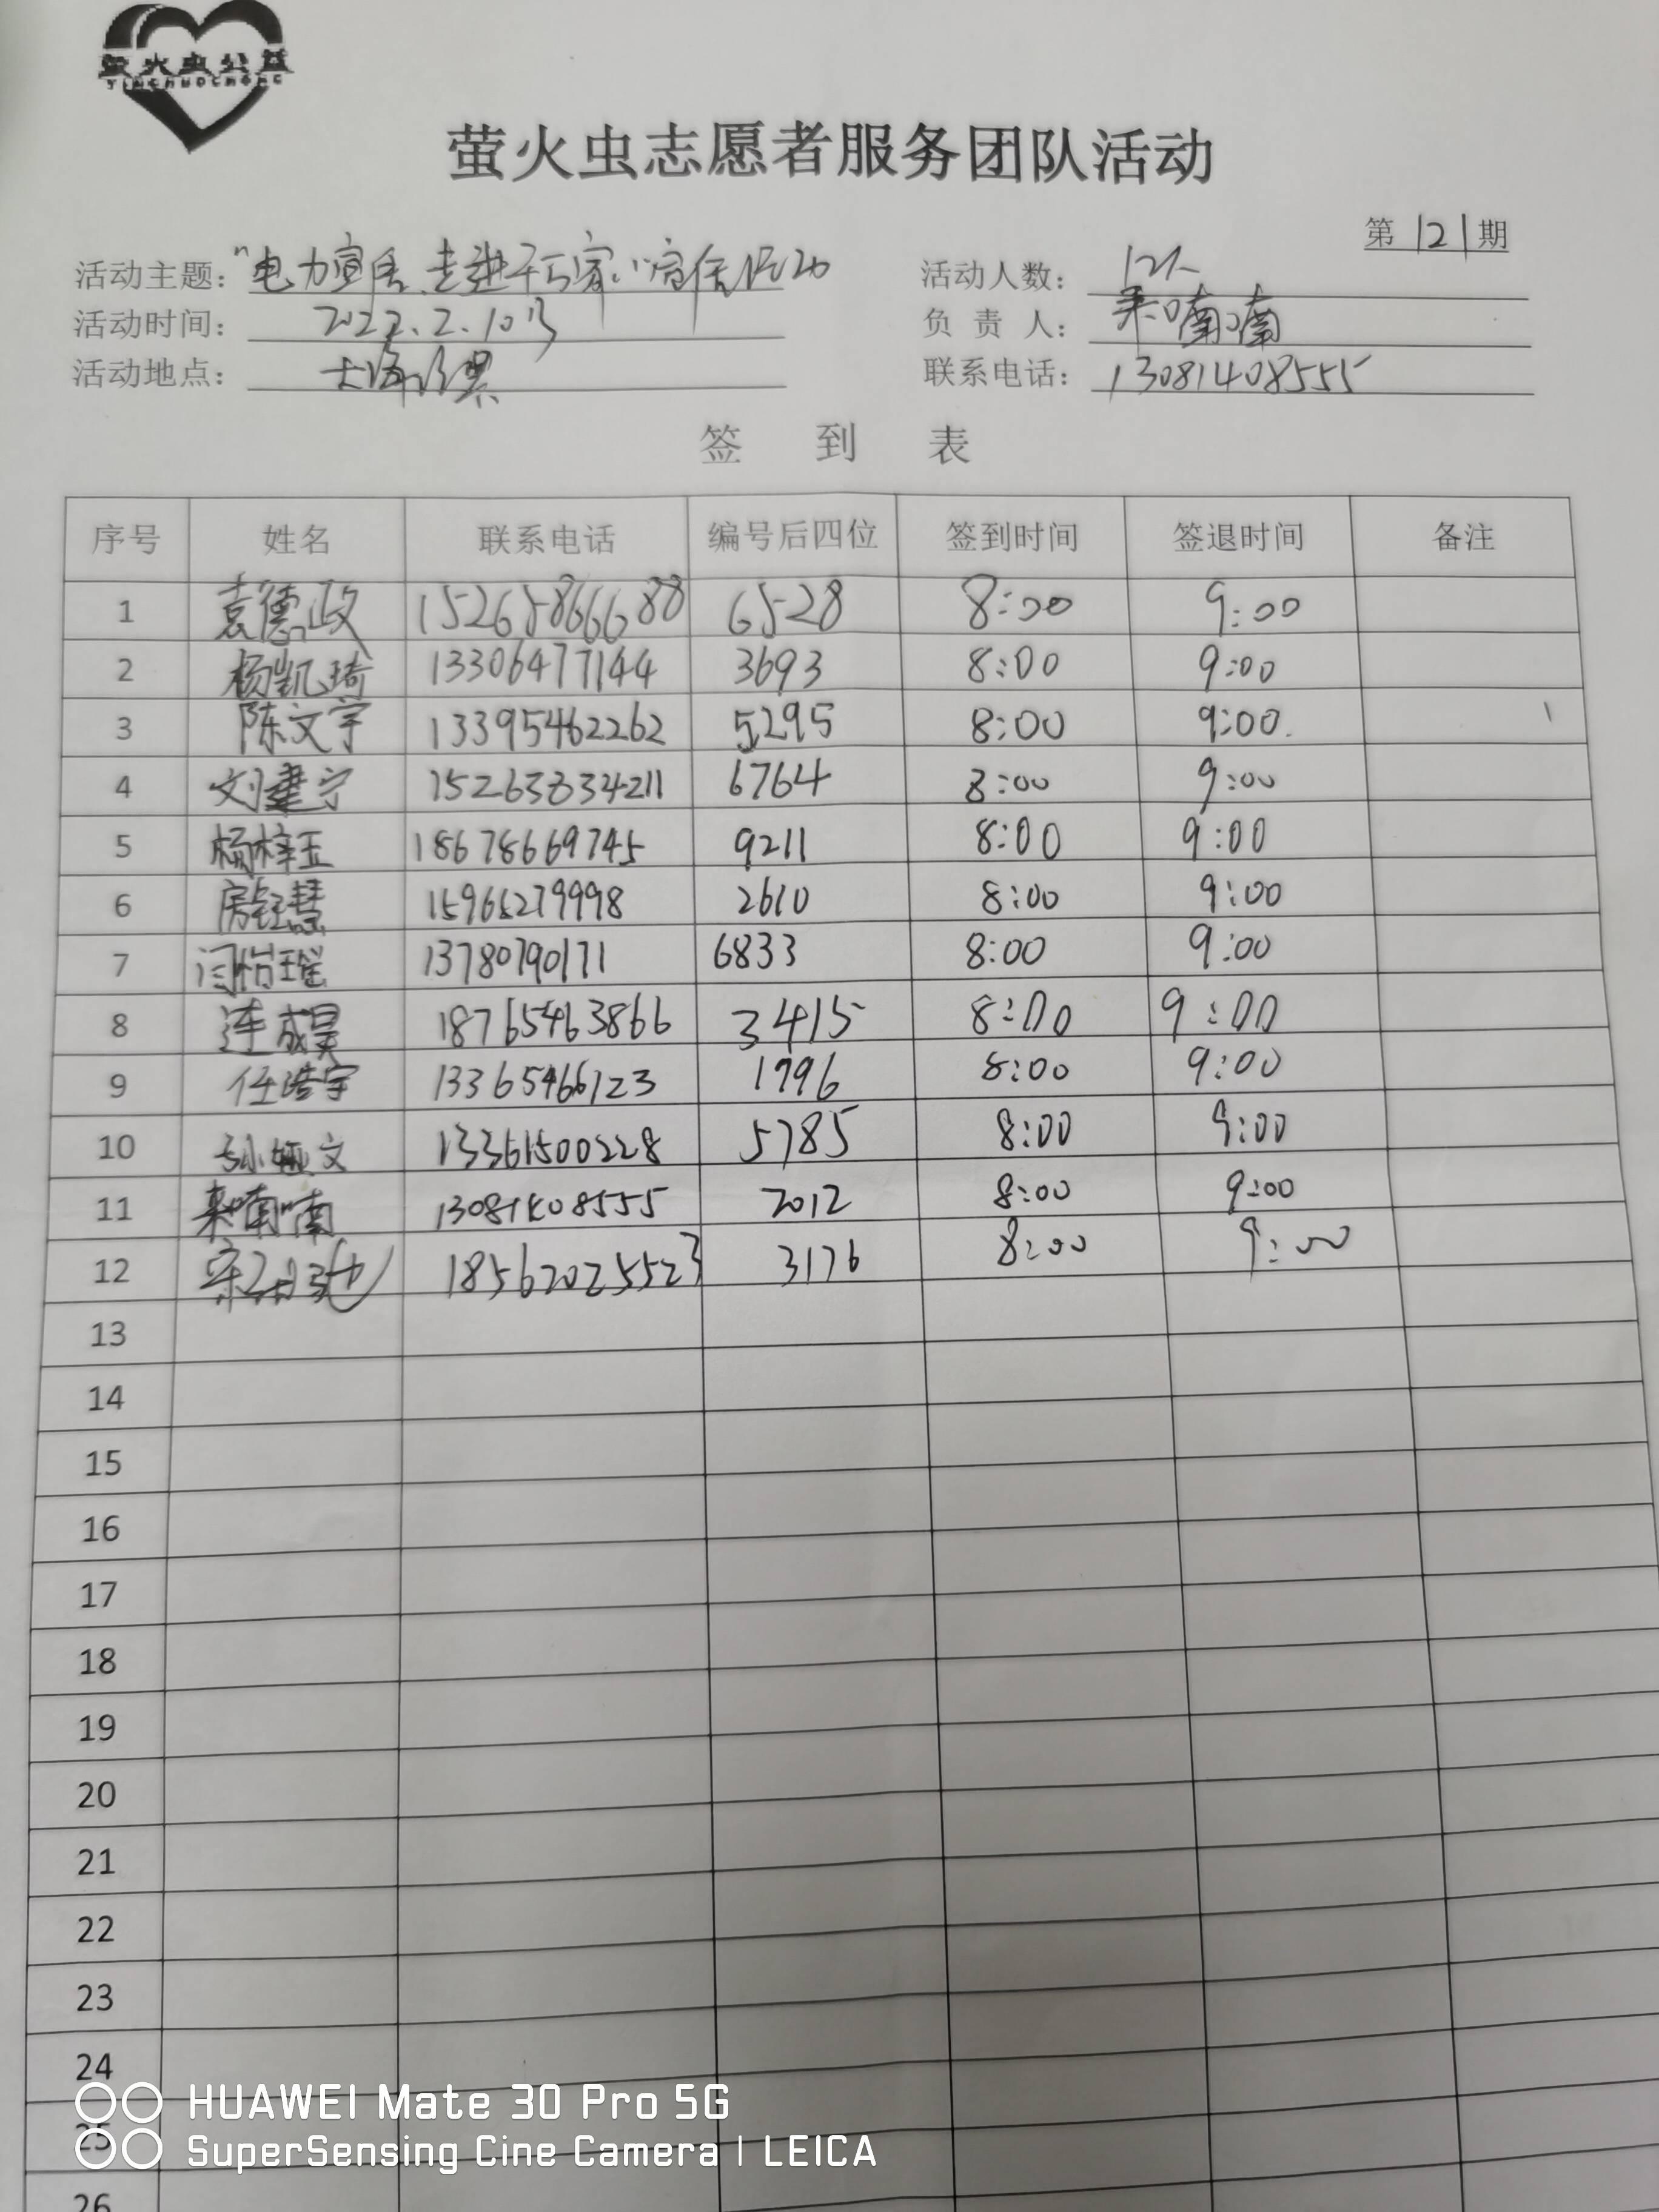 萤火虫公益
YINGHUOCHONG
萤火虫志愿者服务团队活动
第 121 期
活动主题: "电力宣传 走进千万家" 宣传活动
活动人数: 12人
活动时间: 2022.2.10日
负 责 人: 来喃喃
活动地点:
联系电话: 13081408555
签 到 表
序号 姓名 联系电话 编号后四位 签到时间 签退时间 备注
1 袁德政 15265866688 6528 8:00 9:00
2 杨凯琦 13306477144 3693 8:00 9:00
3 陈文宇 13395462262 5295 8:00 9:00
4 刘建宁 15263834211 6764 8:00 9:00
5 杨梓玉 18678669745 9211 8:00 9:00
6 房钰慧 15965279998 2610 8:00 9:00
7 闫怡瑶 13780790171 6833 8:00 9:00
8 连成昊 18765463866 3415 8:00 9:00
9 任浩宇 13365466123 1796 8:00 9:00
10 孙娅文 13361500228 5785 8:00 9:00
11 来喃喃 13081408555 2012 8:00 9:00
12 18562025523 3176 8:00 9:00
13
14
15
16
17
18
19
20
21
22
23
24
25
26
HUAWEI Mate 30 Pro 5G
SuperSensing Cine Camera | LEICA